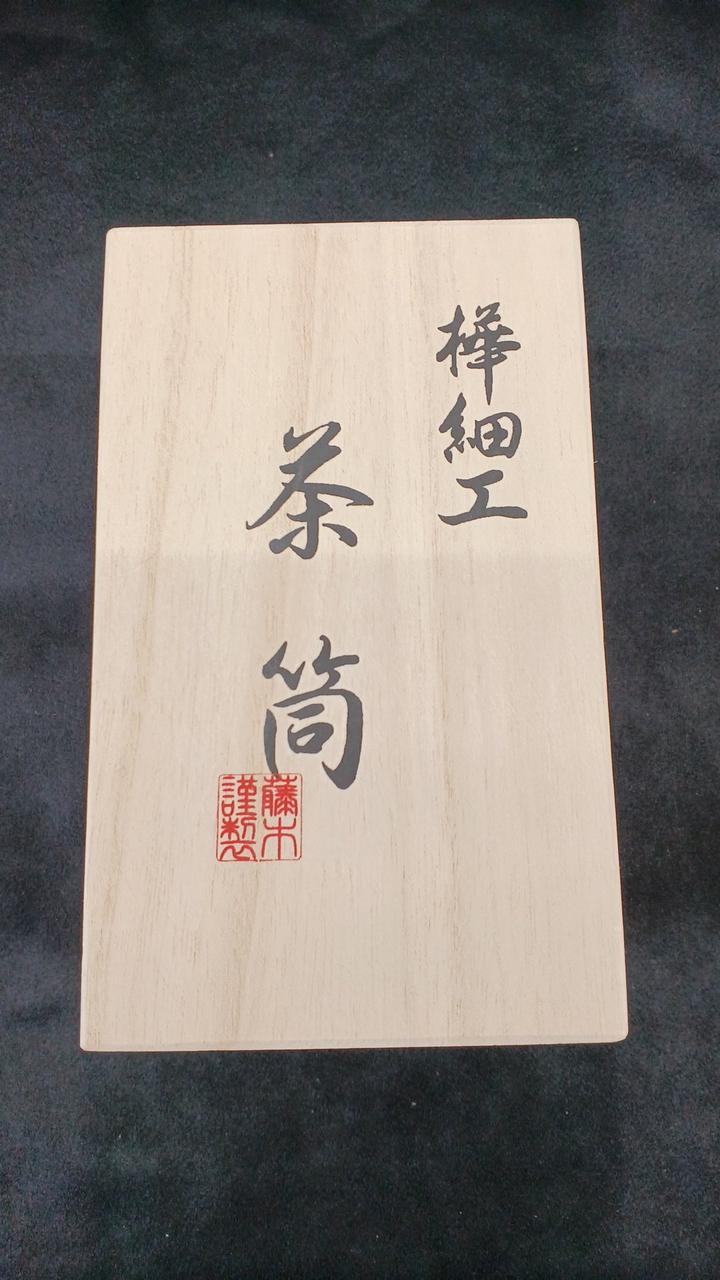 樺細工
茶筒
藤木
謹製